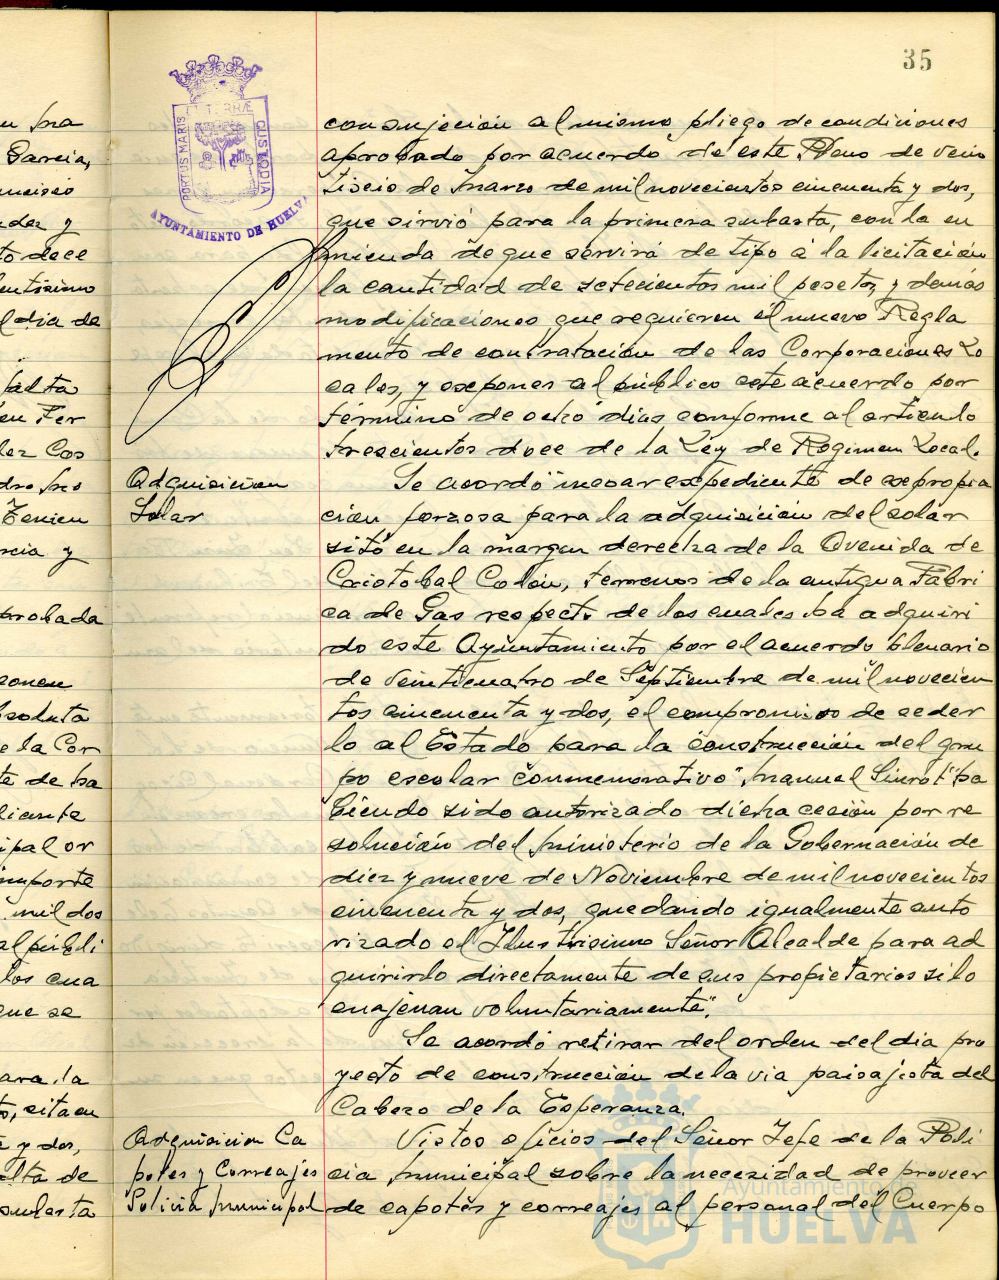 35
PORTUS MARIS ET TERRÆ CUSTODIA
AYUNTAMIENTO DE HUELVA
con sujeción al mismo pliego de condiciones
aprobado por acuerdo de este Pleno de vein
tiseis de Marzo de mil novecientos cincuenta y dos,
que sirvió para la primera subasta, con la en
mienda de que servirá de tipo a la licitación
la cantidad de setecientos mil pesetas, y demás
modificaciones que requieren el nuevo Regla
mento de contratación de las Corporaciones Lo
cales, y exponer al público este acuerdo por
término de ocho días conforme al artículo
trescientos doce de la Ley de Regimen Local.
Adquisicion
Solar
Se acordó "incoar expediente de expropia
ción forzosa para la adquisición del solar
sito en la margen derecha de la Avenida de
Cristobal Colón, terrenos de la antigua Fabri
ca de Gas respecto de los cuales ha adquiri
do este Ayuntamiento por el acuerdo plenario
de veinticuatro de Septiembre de mil novecien
tos cincuenta y dos, el compromiso de ceder
lo al Estado para la construcción del gru
po escolar conmemorativo "Manuel Siurot" ha
biendo sido autorizado dicha cesión por re
solución del Ministerio de la Gobernación de
diez y nueve de Noviembre de mil novecientos
cincuenta y dos, quedando igualmente auto
rizado el Ilustrisimo Señor Alcalde para ad
quirirlo directamente de sus propietarios si lo
enajenan voluntariamente".
Se acordó retirar del orden del dia pro
yecto de construcción de la via paisajista del
Cabezo de la Esperanza.
Adquisicion Ca
potes y Correajes
Policia Municipal
Vistos oficios del Señor Jefe de la Poli
cia Municipal sobre la necesidad de proveer
de capotes y correajes al personal del Cuerpo
Garcia,
ndez y
to doce
l dia de
falta
en Fer
lez Cos
Tenien
rcia y
probada
ponen
bsoluta
e la Cor
te de ha
ipal or
importe
mil dos
al públi
los cua
que se
para la
to, sita en
a y dos,
lta de
subasta
Ayuntamiento de
HUELVA